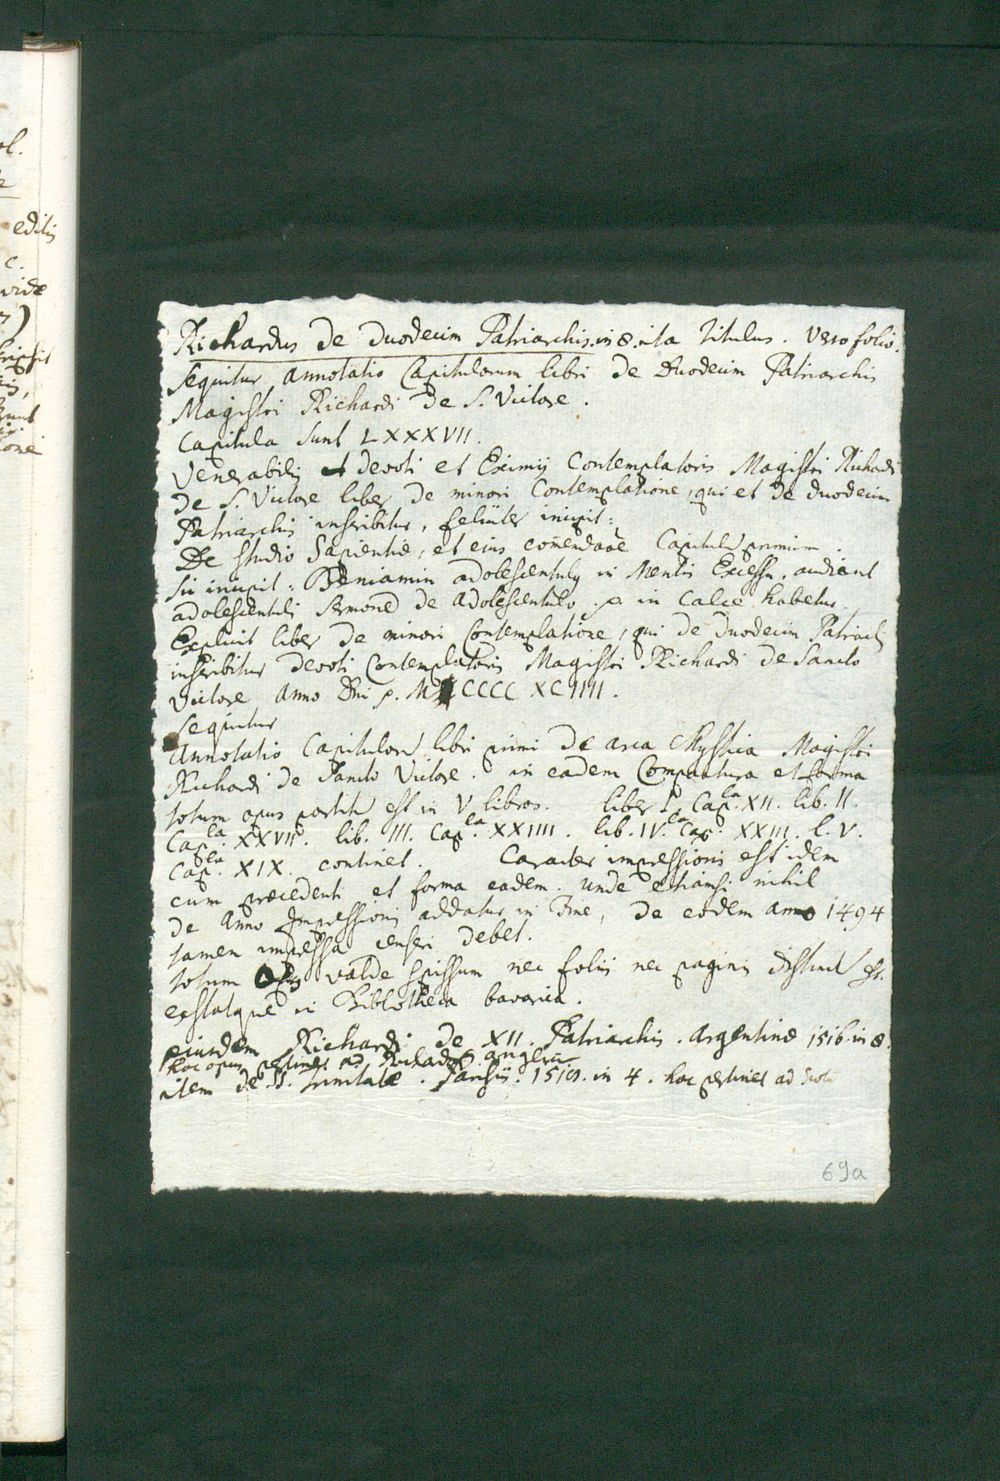 ol.
editis
c.
vidæ
Richardus de duodecim Patriarchis. in 8. ita titulus. verso folio.
sequitur annotatio Capitulorum libri de Duodecim Patriarchis
Magistri Richardi de S. Victore.
Capitula sunt LXXXVII.
Venerabilis et devoti et Eximij Contemplatoris Magistri Richardi
de S. Victore liber de minori Contemplatione, qui et de duodecim
Patriarchis inscribitur, feliciter incipit:
De studio Sapientiæ, et eius com̃endaōe Capitulũ primum.
sic incipit: Beniamin adolescentulus in Mentis Excessu. audiant
adolescentuli sermonẽ de adolescentulo. p. in calce habetur.
Explicit liber de minori Contemplatione, qui de duodecim Patriarch
inscribitur devoti Contemplatoris Magistri Richardi de Sancto
Victore anno Dni p. M CCCC XCIIII.
sequitur
Annotatio Capitulorũ libri primi de arca Mystica Magistri
Richardi de Sancto Victore. in eadem Compactura et forma
totum opus partitũ est in V libros. liber I. Cap.la XII. lib. II.
Cap.la XXVII. lib. III. Cap.la XXIIII. lib. IV. Cap.la XXIII. l. V.
Cap.la XIX. continet. Caracter impressionis est idem
cum præcedenti et forma eadem. unde etiamsi nihil
de anno Impressionis addatur in fine, de eodem anno 1494
tamen impressa censeri debet.
totum Opus valde spissum nec foliis nec paginis distinctũ est.
exstatque in Bibliotheca bavarica.
eiusdem Richardi de XII. Patriarchis. Argentinæ 1516. in 8.
hoc opus pertinet ad Richardũ anglum
item de S. Trinitate. Parisiis. 1510. in 4. hoc pertinet ad
69a